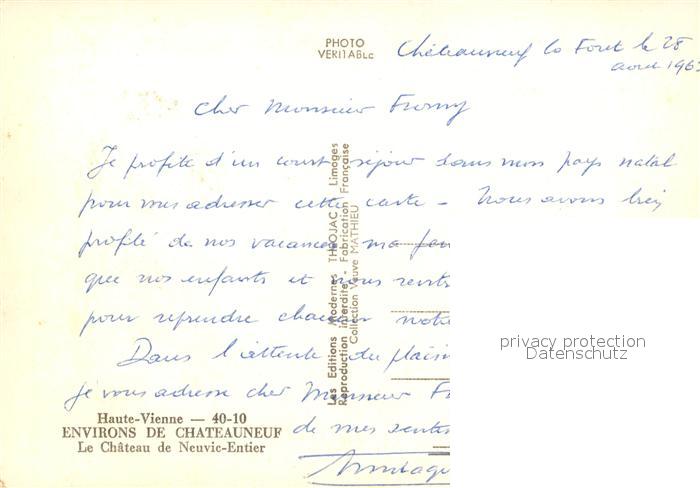 PHOTO
VERITABLE
Châteauneuf la Foret le 28
août 196
cher Monsieur
Je profite d'un court séjour dans mon pays natal
pour vous adresser cette carte - Nous avons bien
profité de nos vacances ma
que nos enfants et nous
pour reprendre chacun notre
Dans l'attente du plaisir
je vous adresse cher Monsieur
de mes
Les Editions Modernes THEOJAC - Limoges
Reproduction interdite - Fabrication Française
Collection Veuve MATHIEU
privacy protection
Datenschutz
Haute-Vienne — 40-10
ENVIRONS DE CHATEAUNEUF
Le Château de Neuvic-Entier